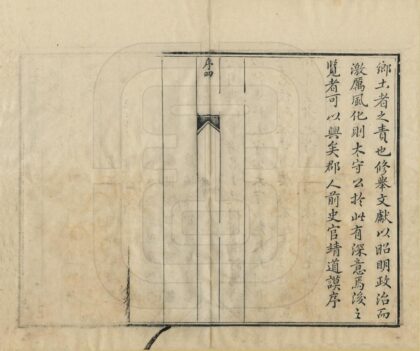 鄉土者之責也修舉文獻以昭明政治而
激厲風化則太守公於此有深意焉後之
覽者可以興矣郡人前史官靖道謨序
序四